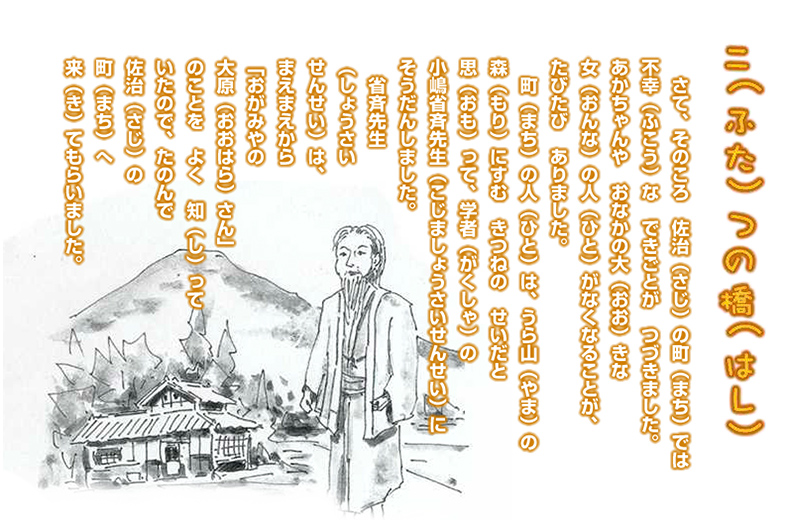 二（ふた）つの橋（はし）
さて、そのころ　佐治（さじ）の町（まち）では
不幸（ふこう）な　できごとが　つづきました。
あかちゃんや　おなかの大（おお）きな
女（おんな）の人（ひと）がなくなることが、
たびたび　ありました。
町（まち）の人（ひと）は、うら山（やま）の
森（もり）にすむ　きつねの　せいだと
思（おも）って、学者（がくしゃ）の
小嶋省斉先生（こじましょうさいせんせい）に
そうだんしました。
省斉先生
（しょうさい
せんせい）は、
まえまえから
「おがみやの
大原（おおはら）さん」
のことを　よく　知（し）って
いたので、たのんで
佐治（さじ）の
町（まち）へ
来（き）てもらいました。